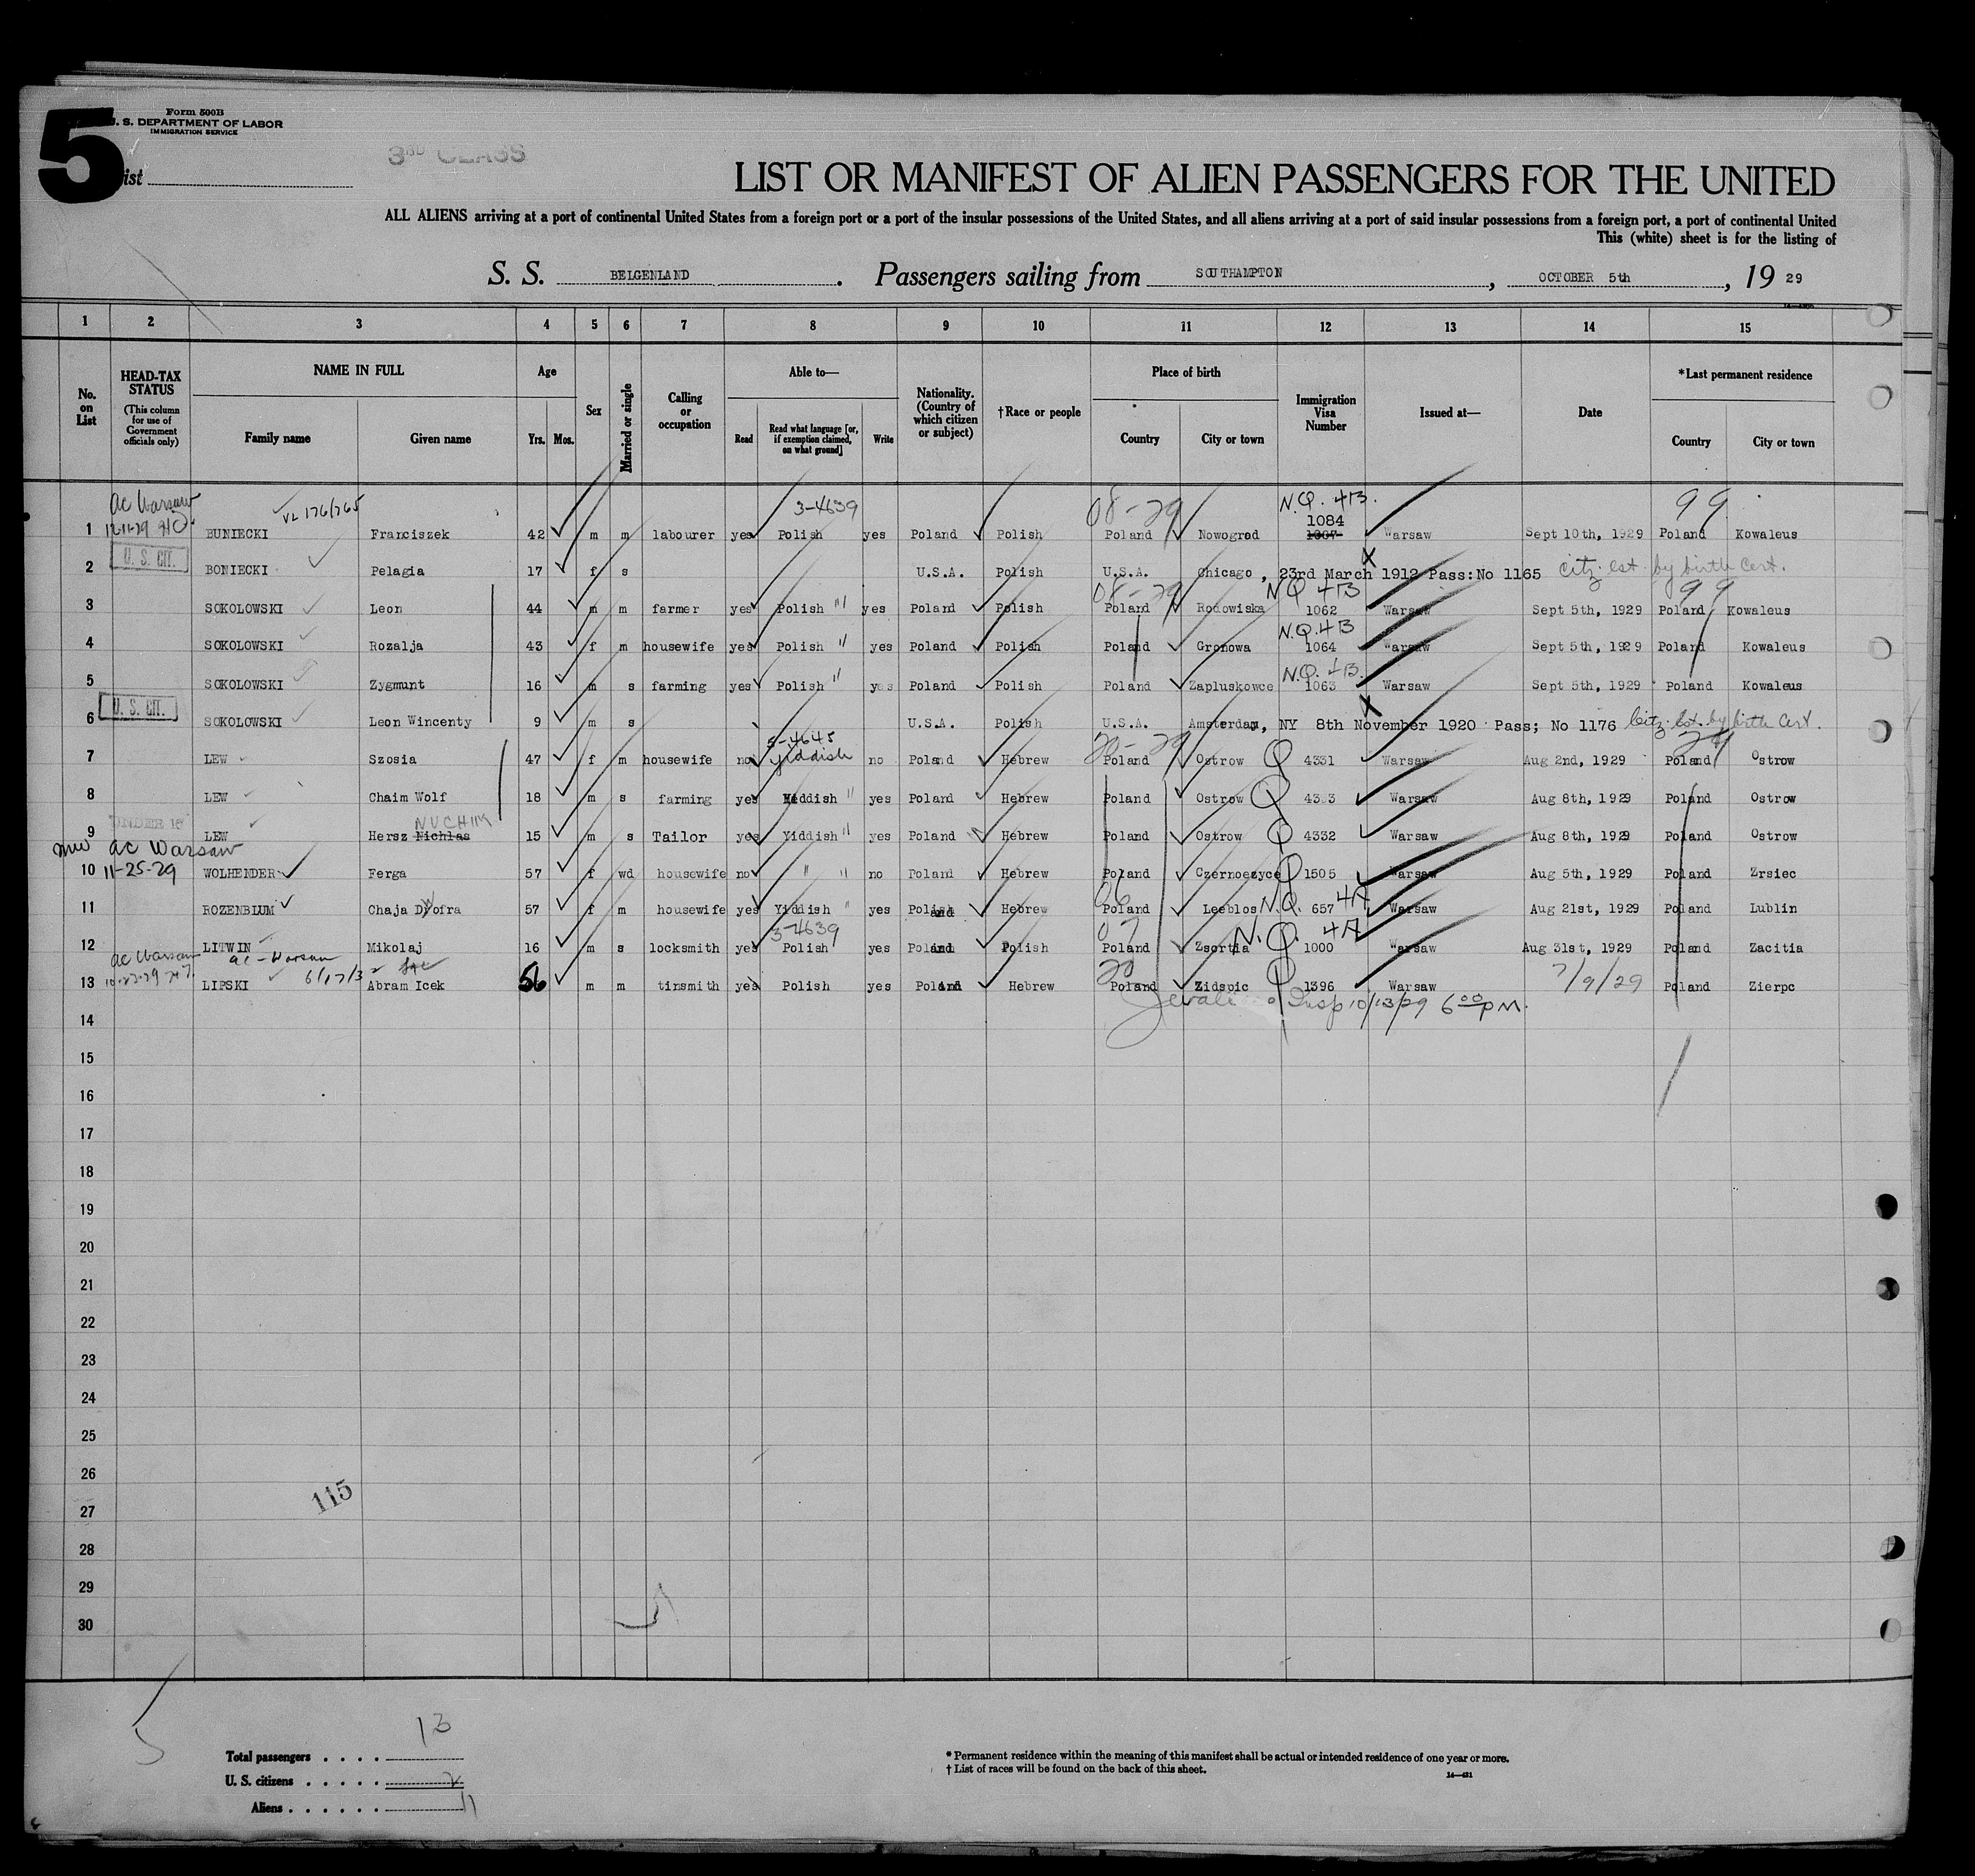 5
Form 500B
U. S. DEPARTMENT OF LABOR
IMMIGRATION SERVICE
3RD CLASS
List
LIST OR MANIFEST OF ALIEN PASSENGERS FOR THE UNITED
ALL ALIENS arriving at a port of continental United States from a foreign port or a port of the insular possessions of the United States, and all aliens arriving at a port of said insular possessions from a foreign port, a port of continental United
This (white) sheet is for the listing of
S. S. BELGENLAND. Passengers sailing from SOUTHAMPTON, OCTOBER 5th, 19 29
1 2 3 4 5 6 7 8 9 10 11 12 13 14 15
No. on List
HEAD-TAX STATUS (This column for use of Government officials only)
NAME IN FULL Family name Given name
Age Yrs. Mos.
Sex
Married or single
Calling or occupation
Able to— Read Read what language [or, if exemption claimed, on what ground] Write
Nationality. (Country of which citizen or subject)
†Race or people
Place of birth Country City or town
Immigration Visa Number
Issued at—
Date
*Last permanent residence Country City or town
ac Warsaw VL 176/765 3-4639 08-29 N.Q. 4B. 99
1084
1 12-11-29 BUNIECKI Franciszek 42 m m labourer yes Polish yes Poland Polish Poland Nowogrod Warsaw Sept 10th, 1929 Poland Kowaleus
U. S. CIT.
2 BONIECKI Pelagia 17 f s U.S.A. Polish U.S.A. Chicago, 23rd March 1912 Pass:No 1165 Citz. est. by birth Cert.
08-29 NQ 4B 99
3 SOKOLOWSKI Leon 44 m m farmer yes Polish " yes Poland Polish Poland Rodowiska 1062 Warsaw Sept 5th, 1929 Poland Kowaleus
N.Q. 4B
4 SOKOLOWSKI Rozalja 43 f m housewife yes Polish " yes Poland Polish Poland Gronowa 1064 Warsaw Sept 5th, 1929 Poland Kowaleus
N.Q. 4B.
5 SOKOLOWSKI Zygmunt 16 m s farming yes Polish " yes Poland Polish Poland Zapluskowce 1063 Warsaw Sept 5th, 1929 Poland Kowaleus
U. S. CIT.
6 SOKOLOWSKI Leon Wincenty 9 m s U.S.A. Polish U.S.A. Amsterdam, NY 8th November 1920 Pass; No 1176 Citz. Est. by birth Cert.
5-4645 20-29
7 LEW Szosia 47 f m housewife no Yiddish no Poland Hebrew Poland Ostrow Q 4331 Warsaw Aug 2nd, 1929 Poland Ostrow
8 LEW Chaim Wolf 18 m s farming yes Yiddish " yes Poland Hebrew Poland Ostrow Q 4333 Warsaw Aug 8th, 1929 Poland Ostrow
UNDER 16 NUCHIM
9 LEW Hersz Nichlas 15 m s Tailor yes Yiddish " yes Poland Hebrew Poland Ostrow Q 4332 Warsaw Aug 8th, 1929 Poland Ostrow
ac Warsaw
10 11-25-29 WOLHENDER Ferga 57 f wd housewife no " " no Poland Hebrew Poland Czernoezyce Q 1505 Warsaw Aug 5th, 1929 Poland Zrsiec
11 ROZENBLUM Chaja Dwofra 57 f m housewife yes Yiddish " yes Poland Hebrew Poland Leeblos N.Q. 657 4A Warsaw Aug 21st, 1929 Poland Lublin
3-4639 07 N.Q. 4A
12 LITWIN Mikolaj 16 m s locksmith yes Polish yes Poland Polish Poland Zsortia 1000 Warsaw Aug 31st, 1929 Poland Zacitia
ac Warsaw ac - Warsaw
13 LIPSKI Abram Icek 56 m m tinsmith yes Polish yes Poland Hebrew Poland Zidspic Q 1396 Warsaw 7/9/29 Poland Zierpc
14 Insp 10/13/29 6 00 PM.
15
16
17
18
19
20
21
22
23
24
25
26
27
115
28
29
30
Total passengers . . . . 13
U. S. citizens . . . . . 2
Aliens . . . . . . 11
* Permanent residence within the meaning of this manifest shall be actual or intended residence of one year or more.
† List of races will be found on the back of this sheet.